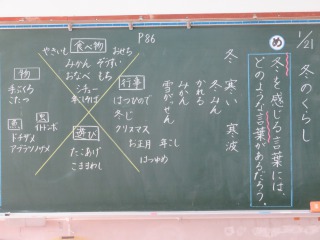 1/21 冬のくらし
め
冬を感じる言葉には、
どのような言葉があるだろう。
冬 寒い 寒波
冬みん
かれる
みかん
雪がっせん
P86
食べ物
やきいも
おせち
みかん ぞうすい
おなべ もち
シチュー
行事
はつひので
冬じ
クリスマス
お正月 年こし
はつゆめ
物
手ぶくろ
こたつ
魚
ドチザメ
アブラツノザメ
虫
イトトンボ
遊び
たこあげ
こままわし